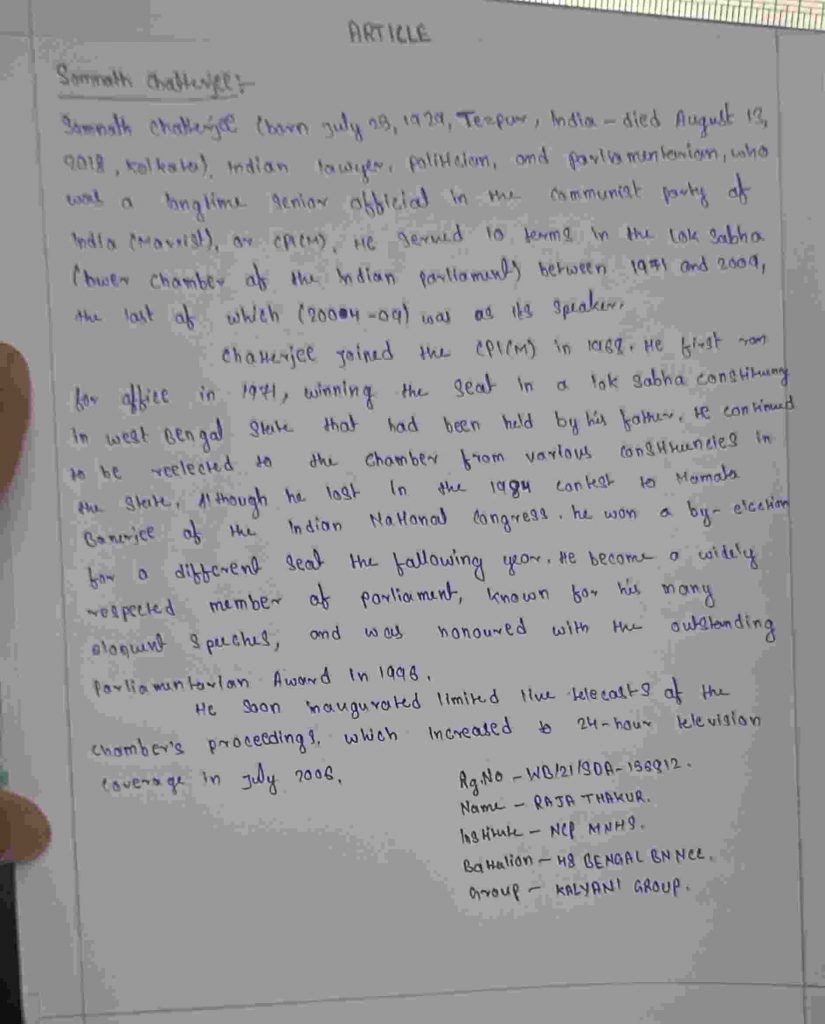 ARTICLE
Somnath Chatterjee :-
Somnath Chatterjee (born July 25, 1929, Tezpur, India - died August 13,
2018, Kolkata), Indian lawyer, politician, and parliamentarian, who
was a longtime senior official in the communist party of
India (Marxist), or CPI(M). He served 10 terms in the Lok Sabha
(lower chamber of the Indian parliament) between 1971 and 2009,
the last of which (2004-09) was as its speaker.
Chatterjee joined the CPI(M) in 1968. He first ran
for office in 1971, winning the seat in a lok sabha constituency
In west Bengal state that had been held by his father. He continued
to be reelected to the chamber from various constituencies in
the state, Although he lost in the 1984 contest to Mamata
Banerjee of the Indian National Congress. he won a by-election
for a different seat the following year. He become a widely
respected member of parliament, known for his many
eloquent speeches, and was honoured with the outstanding
Parliamentarian Award in 1996.
He soon inaugurated limited live telecasts of the
chamber's proceedings, which increased to 24-hour television
coverage in July 2006.
Rg.No - WB/21/SDA-156912.
Name - RAJA THAKUR.
Institute - NCP MNHS.
Battalion - 48 BENGAL BN NCC.
Group - KALYANI GROUP.